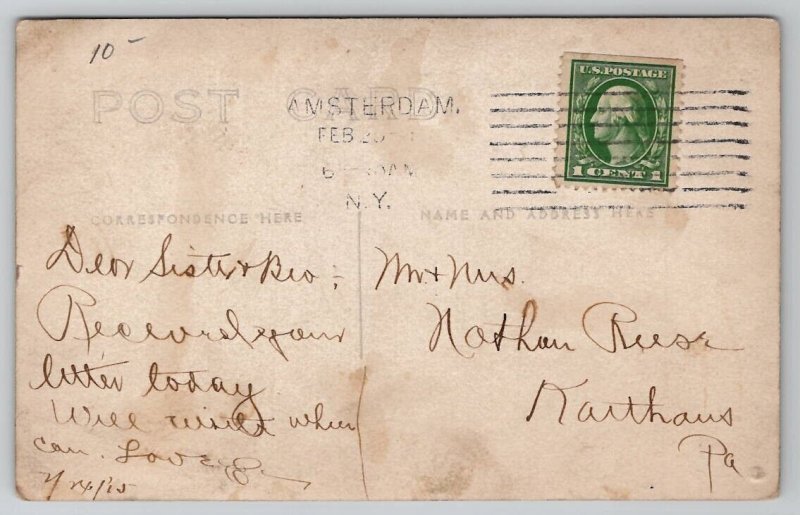 10-
POST CARD
AMSTERDAM,
FEB
N.Y.
U.S. POSTAGE
1 CENT 1
CORRESPONDENCE HERE
NAME AND ADDRESS HERE
Dear Sister & Bro;
Received your
letter today
Will write when
can. Love
Mr & Mrs.
Nathan Reese
Karthaus
Pa